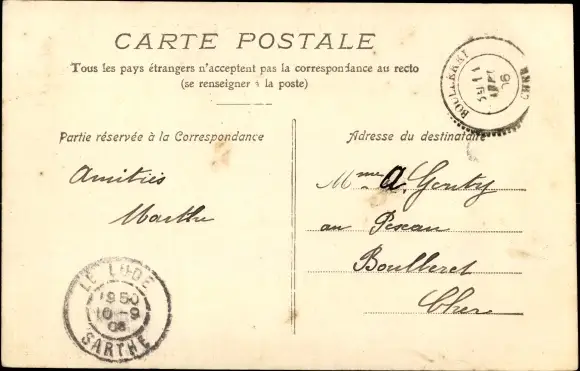 CARTE POSTALE
Tous les pays étrangers n'acceptent pas la correspondance au recto
(se renseigner à la poste)
Partie réservée à la Correspondance
Amitiés
Marthe
Adresse du destinataire
Mme A. Genty
au Peseau
Boulleret
Cher
BOULLERET
11
SEPT
06
CHER
LE LUDE
19 50
10 - 9
06
SARTHE